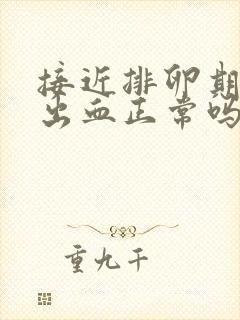 接近排卵期
出血正常吗
重九千